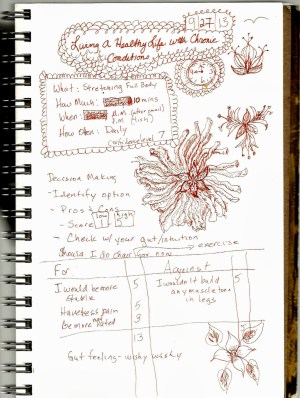 9 27 15
Living A Healthy Life with Chronic
Conditions
What: Stretching Full Body
How Much: 10 mins
When: A.M (after meal)
P.M (7ish)
How Often: Daily
Confidence level 7
Decision Making
- Identify option
- Pros & Cons
- Score Low 1 High 5
- Check w/ your gut/intuition
exercise
Should I do chair now
For
Against
I would be more
stable
5
I wouldn't build
any muscle tone
in legs
5
Have less pain
5
be more
3
13
Gut feeling - wishy washy